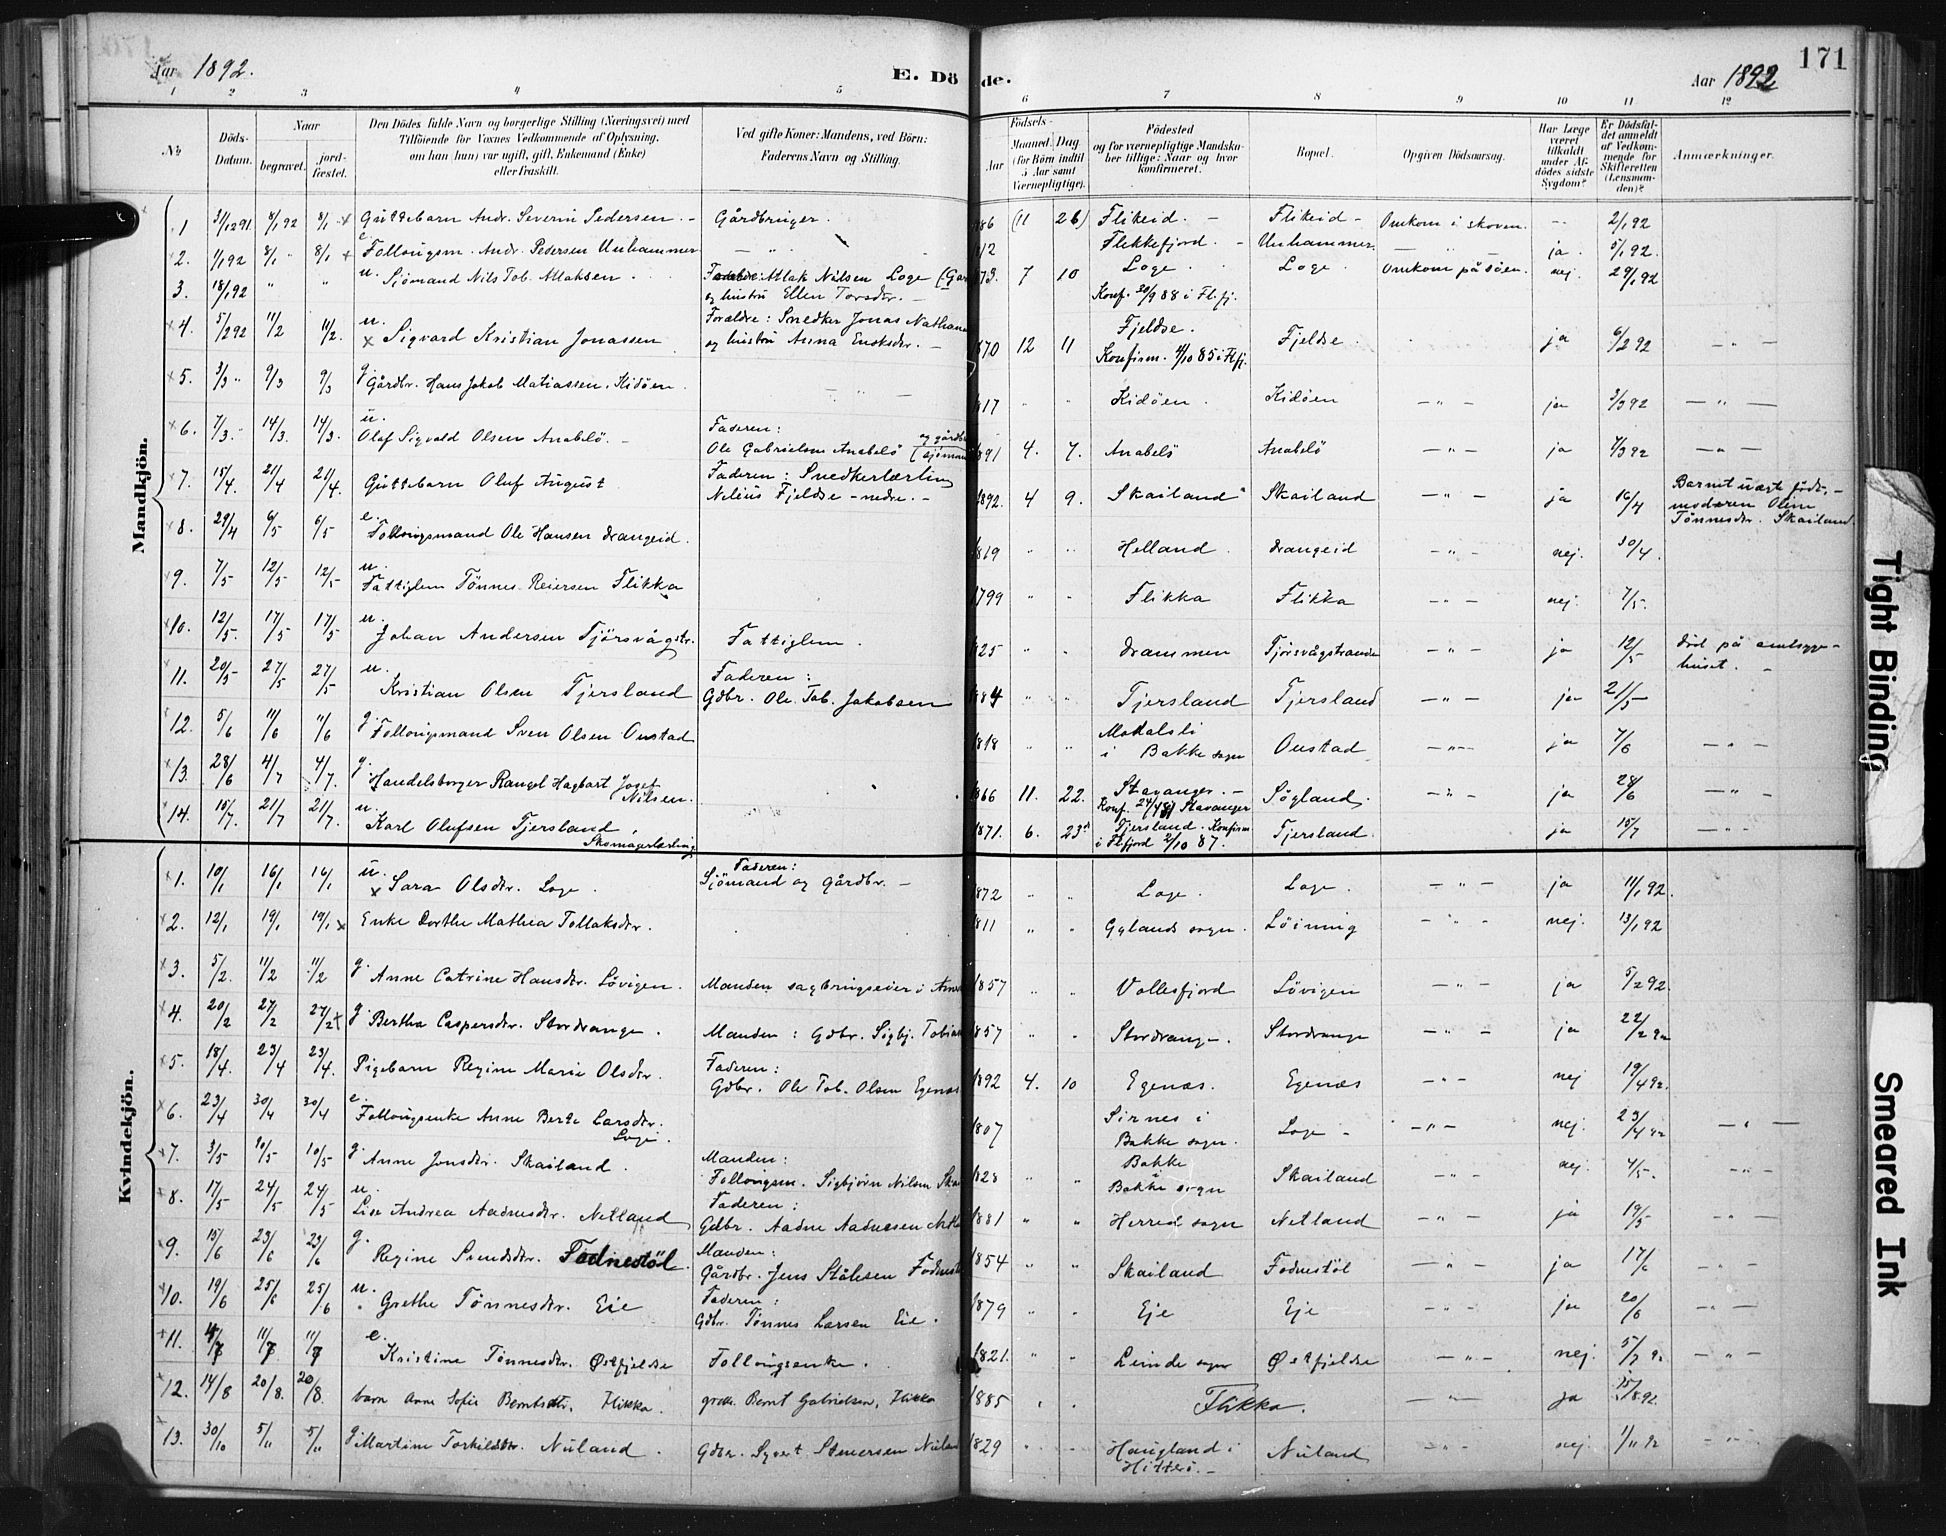 171
Aar 1892.
E. Döde.
Aar 1892
1 2 3 4 5 6 7 8 9 10 11 12
No
Döds-Datum.
Naar
begravet.
jord-fæstet.
Den Dödes fulde Navn og borgerlige Stilling (Næringsvei) med
Tilföiende for Voxnes Vedkommende af Oplysning,
om han (hun) var ugift, gift, Enkemand (Enke)
eller fraskilt.
Ved gifte Koner: Mandens, ved Börn:
Faderens Navn og Stilling.
Födsels-
Aar
Maaned. Dag
(for Börn indtil
5 Aar samt
Værnepligtige).
Födested
og for værnepligtige Mandska-
ber tillige: Naar og hvor
konfirmeret.
Bopæl.
Opgiven Dödsaarsag.
Har Læge
været
tilkaldt
under Af-
dödes sidste
Sygdom?
Er Dödsfal-
det anmeldt
af Vedkom-
mende for
Skifteretten
(Lensman-
den)?
Anmærkninger.
Mandkjön.
1. 31/12 91. 8/1 92 8/1 Guttebarn Andr. Severin Pedersen. Gårdbruger. 86 (11 26) Flikeid. Flikeid Omkom i skoven. 2/1 92
2. 1/1 92 8/1 " 8/1 e. Follougsm. Andr. Pedersen Unhammer — " — 12 Flekkefjord. Unhammer. — " — ja 5/1 92.
3. 18/1 92 " " u. Sjömand Nils Tob. Atlaksen. Atlak Nilsen Loge
og hustru Ellen Torsdr. 73. 7 10 Loge. Konf. 30/9 88 i Fl.fj. Loge. Omkom på söen. nej 29/1 92
4. 5/2 92 11/2 11/2. u. Sigvard Kristian Jonassen Forældre: Snedker Jonas Nathana
og hustru Anna Enoksdr. 1870 12 11 Fjeldse.
Konfirm. 4/10 85 i Flfj. Fjeldse. ja 6/2 92 — " —
5. 3/3 " 9/3 9/3 g. Gårdbr. Hans Jakob Matiassen, Kidöen. 1817 " " Kidöen. Kidöen — " — ja 3/3 92 — " —
6. 7/3. 14/3. 14/3. u. Olaf Sigvald Olsen Anabelö. Faderen:
Ole Gabrielsen Anabelö og gårdbr
(sjömand 1891 4. 7. Anabelö Anabelö — " — ja 7/3 92 — " —
7. 15/4. 21/4 21/4. Guttebarn Oluf August Faderen: Snedkerlærling
Nelius Fjeldse — nedre. — 1892. 4 9. Skailand Skailand — " — ja 16/4 Barnet uægt födt, —
moderen Olene
Tönnesdr. Skailand.
8. 29/4 6/5 6/5 e. Follougsmand Ole Hansen Drangeid. 1819 " " Helland. Drangeid — " — nej. 30/4.
9. 7/5 12/5 12/5 u. Fattiglem Tönnes Reiersen Flikka 1799 " " Flikka Flikka — " — nej. 7/5.
10. 12/5. 17/5 17/5 u. Johan Andersen Tjörsvågstr. Fattiglem. 1825 " " Drammen Tjörsvågstranden — " — ja 12/5 Död på amtssyge-
huset.
11. 20/5 27/5 27/5 u. Kristian Olsen Tjersland Faderen:
Gdbr. Ole Tob. Jakobsen 1884 " " Tjersland Tjersland — " — ja 21/5
12. 5/6 11/6 11/6 g. Follougsmand Sven Olsen Oustad 1818 " " i Bakke sogn Oustad — " — ja 7/6 — " —
13. 28/6 4/7 4/7. g. Handelsborger Rangel Hagbart
Nilsen. 1866 11. 22. Stavanger. —
Konf. 24/4 81 Stavanger Sögland. — " — ja 28/6 — " —
14. 15/7. 21/7 21/7. u. Karl Olufsen Tjersland,
Skomagerlærling 1871. 6. 23. Tjersland. Konfirm
i Flfjord 2/10 87. Tjersland. ja 15/7 — " —
Kvindekjön.
1. 10/1 16/1 16/1 u. Sara Olsdr. Loge. Faderen:
Sjömand og Gårdbr. — 1872 " " Loge. Loge. — " — ja 11/1 92.
2. 12/1 19/1 19/1 Enke Dorthe Mathea Tollaksdr. 1811 " " Gylands sogn. Löining — " — nej. 13/1 92
3. 5/2 11/2 11/2 g. Anne Catrine Hansdr. Lövigen. Manden sagbrugseier 1857 " " Vollesfjord Lövigen — " — ja 5/2 92.
4. 20/2 27/2 27/2 g. Bertha Caspersdr. Stordrange. Manden: Gdbr. Sigbj. Tobias 1857 " " Stordrange. Stordrange — " — ja 22/2 92
5. 18/4. 23/4 23/4. Pigebarn Regine Marie Olsdr. Faderen:
Gdbr. Ole Tob. Olsen Egenæs 1892 4. 10 Egenæs. Egenæs — " — nej 19/4 92.
6. 23/4 30/4 30/4 e. Follougsenke Anne Berte Larsdr.
Loge. 1807 Sirnes i
Bakke sogn. Loge — — " — nej. 23/4 92 — " —
7. 3/5 10/5 10/5 g. Anne Jonsdr. Skailand. Manden:
Follougsm. Sigbjörn Nilsen Skai 1823 " " Bakke
i
Bakke sogn Skailand — " — nej. 4/5. — " —
8. 17/5 24/5 24/5 u. Lise Andrea Aadnesdr. Netland Faderen:
Gdbr. Aadne Aadnesen Netla 1881 " " Herred sogn Netland — " — ja 19/5 — " —
9. 15/6 23/6 23/6 g. Regine Svendsdr. Fodnestöl. Manden:
Gårdbr. Jens Stålesen Fodnest 1854 " " Skailand Fodnestöl — " — ja 17/6 — " —
10. 19/6 25/6 25/6 u. Grethe Tönnesdr. Eie Faderen:
Gdbr. Tönnes Larsen Eie. 1879 " " Eje Eje — " — ja 20/6 — " —
11. 4/7 11/7 11/7 e. Kristine Tönnesdr. Østfjeldse Follougsenke. 1821. " " Leinde sogn Østfjeldse — " — nej. 5/7 92 — " —
12. 14/8 20/8. 20/8. barn Anne Sofie Berntsdtr, Flikka. Bernt Gabrielsen, Flikka 1885 Flikka. — " — ja 15/8 92.
13. 30/10 5/11 5/11 g. Martine Torkildsdr. Nuland. Gdbr. Syvert Nulan 1829 " " Haugland i
Hitterö. — Nuland — " — nej. 1/11 92 — " —
Tight Binding
Smeared Ink